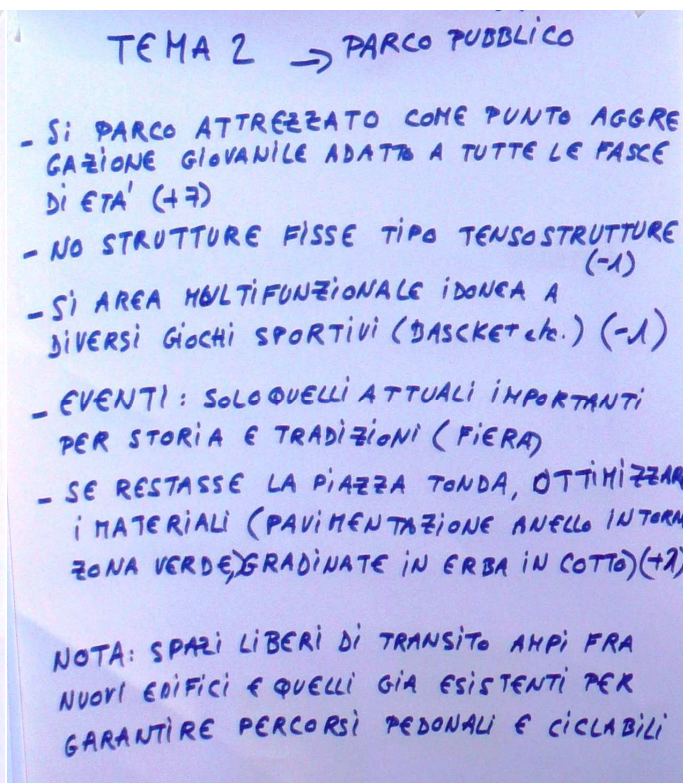 TEMA 2 → PARCO PUBBLICO
- Sì PARCO ATTREZZATO COME PUNTO AGGRE
GAZIONE GIOVANILE ADATTO A TUTTE LE FASCE
DI ETA' (+7)
- NO STRUTTURE FISSE TIPO TENSOSTRUTTURE
(-1)
- Sì AREA MULTIFUNZIONALE IDONEA A
DIVERSI GIOCHI SPORTIVI (BASCKET etc.) (-1)
- EVENTI: SOLO QUELLI ATTUALI IMPORTANTI
PER STORIA E TRADIZIONI (FIERA)
- SE RESTASSE LA PIAZZA TONDA, OTTIMIZZAR
I MATERIALI (PAVIMENTAZIONE ANELLO INTORN
ZONA VERDE, GRADINATE IN ERBA IN COTTO)
NOTA: SPAZI LIBERI DI TRANSITO AMPI FRA
NUOVI EDIFICI E QUELLI GIA ESISTENTI PER
GARANTIRE PERCORSI PEDONALI E CICLABILI